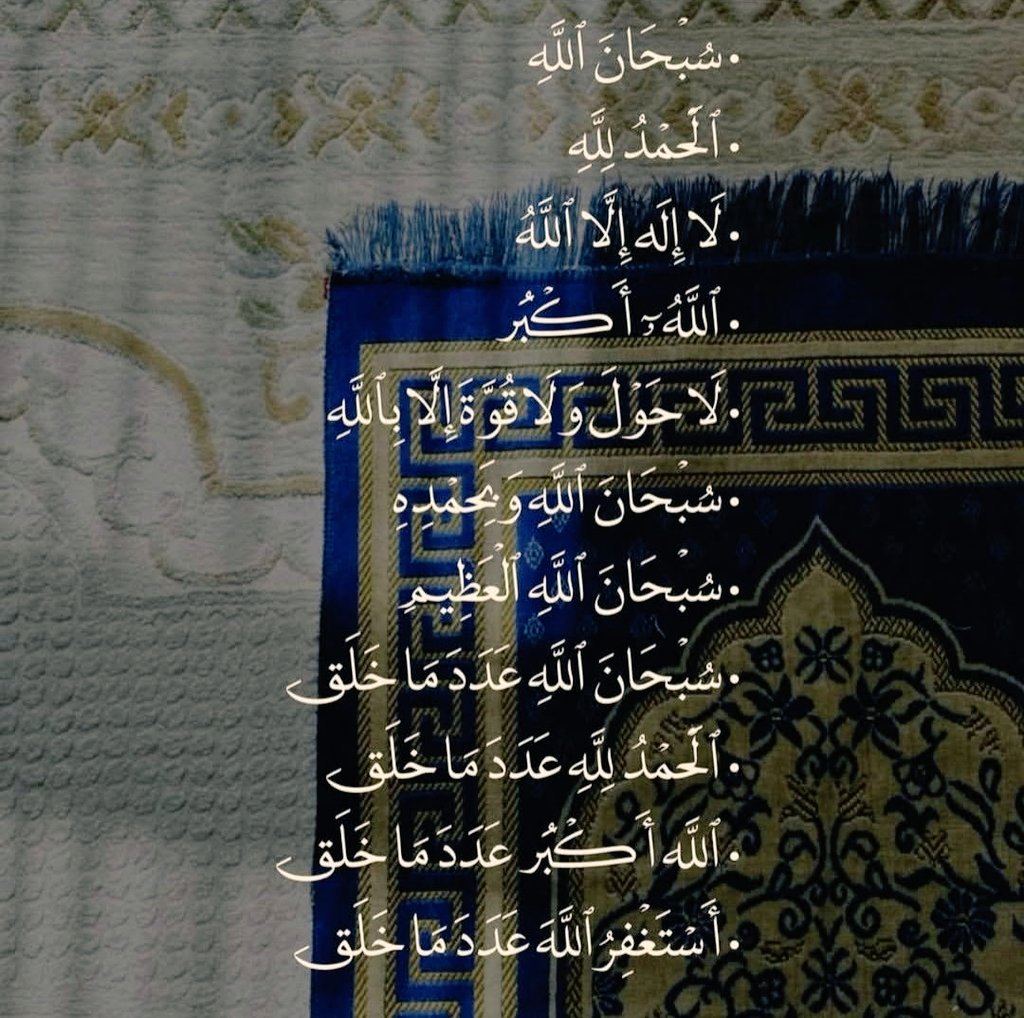 • سُبْحَانَ ٱللَّهِ
• ٱلْحَمْدُ لِلَّهِ
• لَا إِلَه إِلَّا ٱللَّهُ
• ٱللَّهُ أَكْبُر
• لَا حَوْلَ وَلَا قُوَّةَ إِلَّا بِٱللَّهِ
• سُبْحَانَ ٱللَّهِ وَبِحَمْدِهِ
• سُبْحَانَ ٱللَّهِ ٱلْعَظِيمِ
• سُبْحَانَ ٱللَّهِ عَدَدَ مَا خَلَق
• ٱلْحَمْدُ لِلَّهِ عَدَدَ مَا خَلَق
• ٱللَّه أَكْبُر عَدَدَ مَا خَلَق
• أَسْتَغْفِرُ ٱللَّهَ عَدَدَ مَا خَلَق